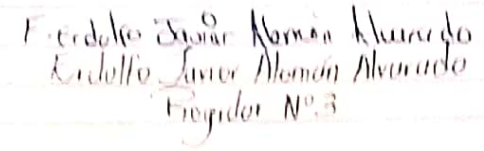 F. Erdulfo Javier Alemán Alvarado
Erdulfo Javier Alemán Alvarado
Regidor Nº.3